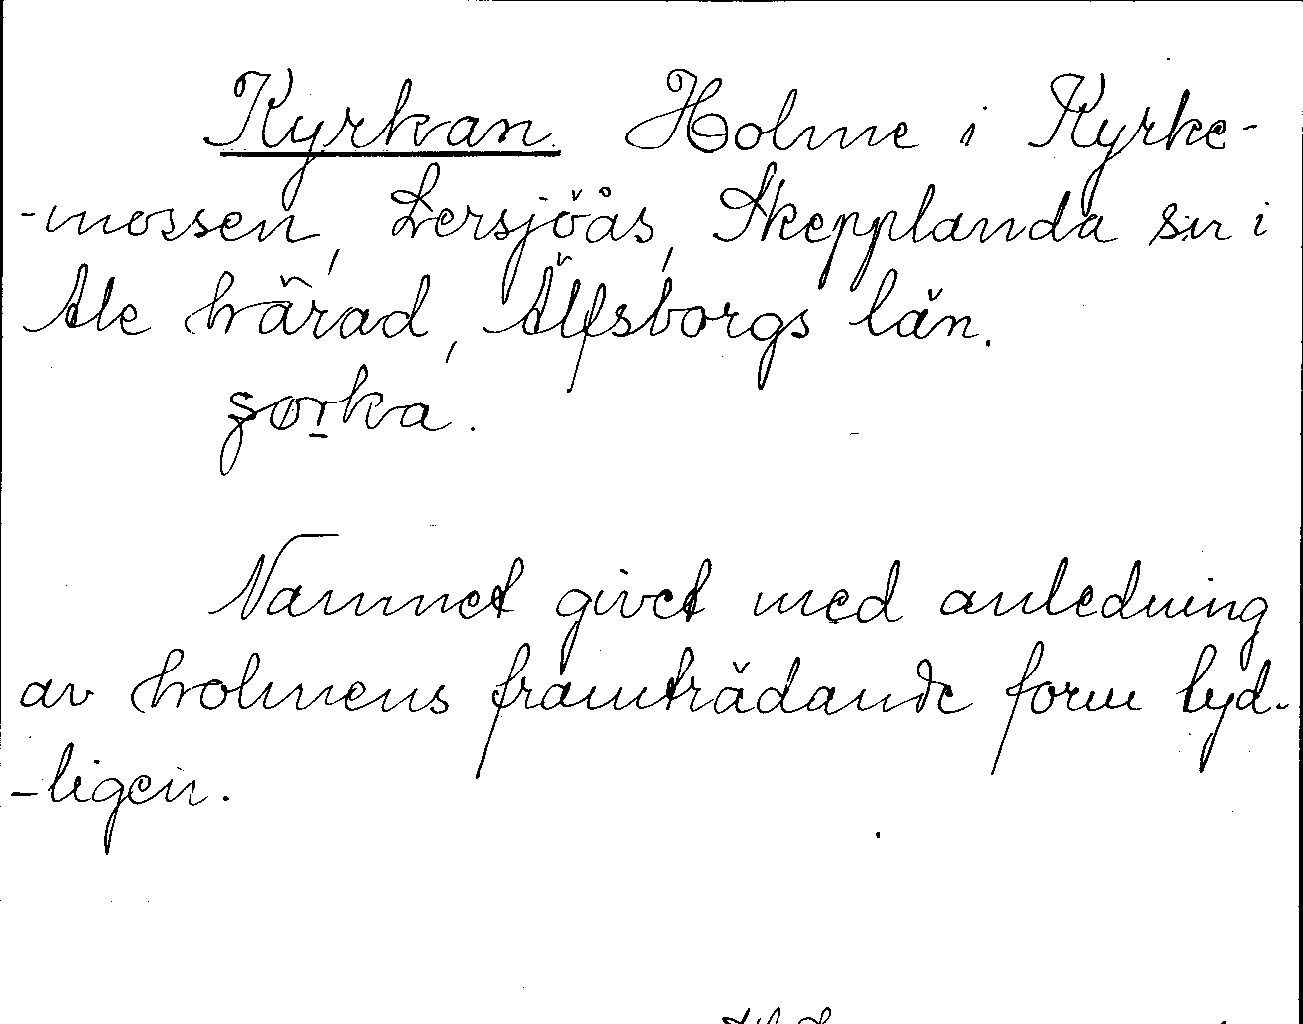 Kyrkan Holme i Kyrke-
-mossen, Lersjöås, Skepplanda sn i
Ale härad, Älfsborgs län.
Namnet givet med anledning
av holmens framträdande form tyd-
-ligen.